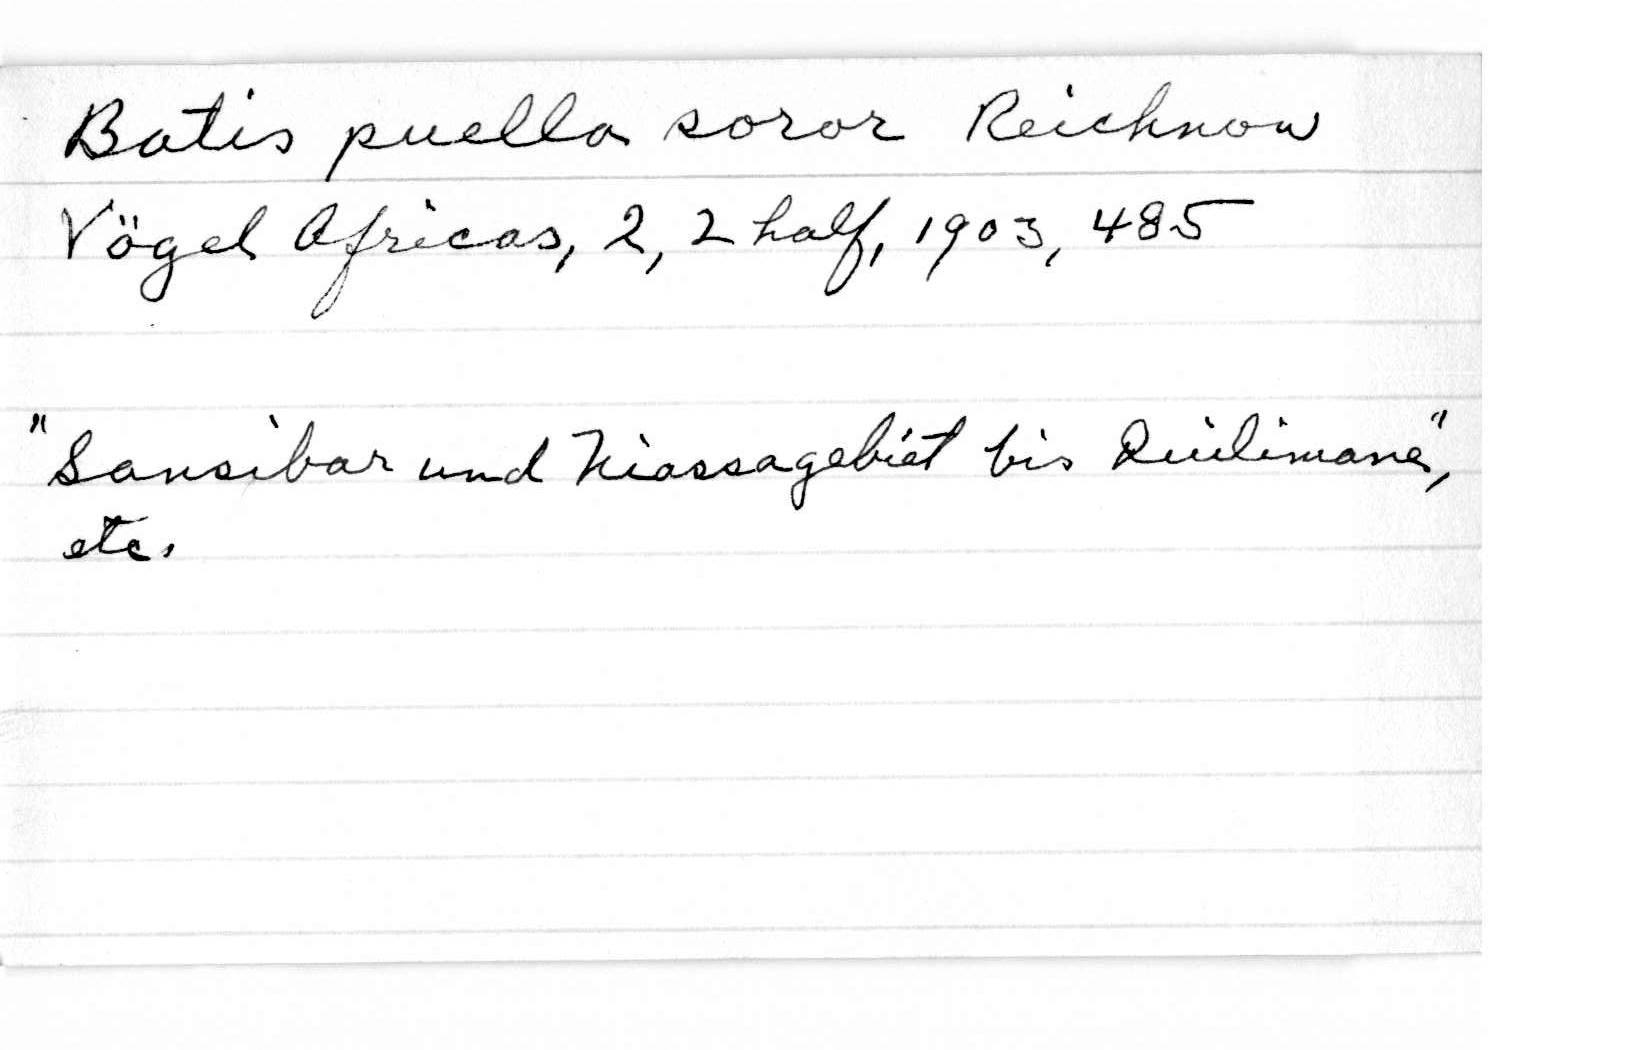 Batis puella soror Reichnow
Vögel Africas, 2, 2 half, 1903, 485
"Sansibar und Niassagebiet bis Quilimane",
etc.